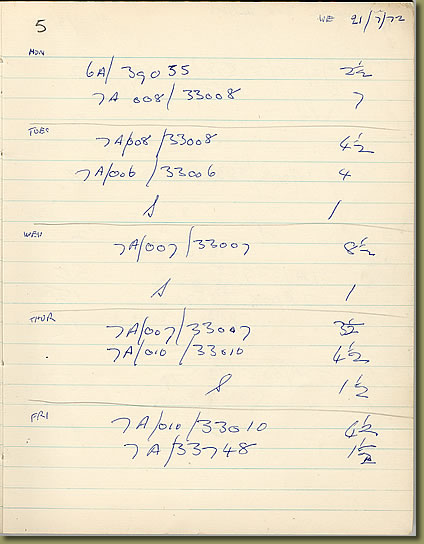 5 WE 21/7/72
MON
6A/39055 2½
7A 008/33008 7
TUES
7A/008/33008 4½
7A/006/33006 4
S 1
WED
7A/007/33007 8½
S 1
THUR
7A/007/33007 3½
7A/010/33010 4½
S 1½
FRI
7A/010/33010 4½
7A/33748 1½